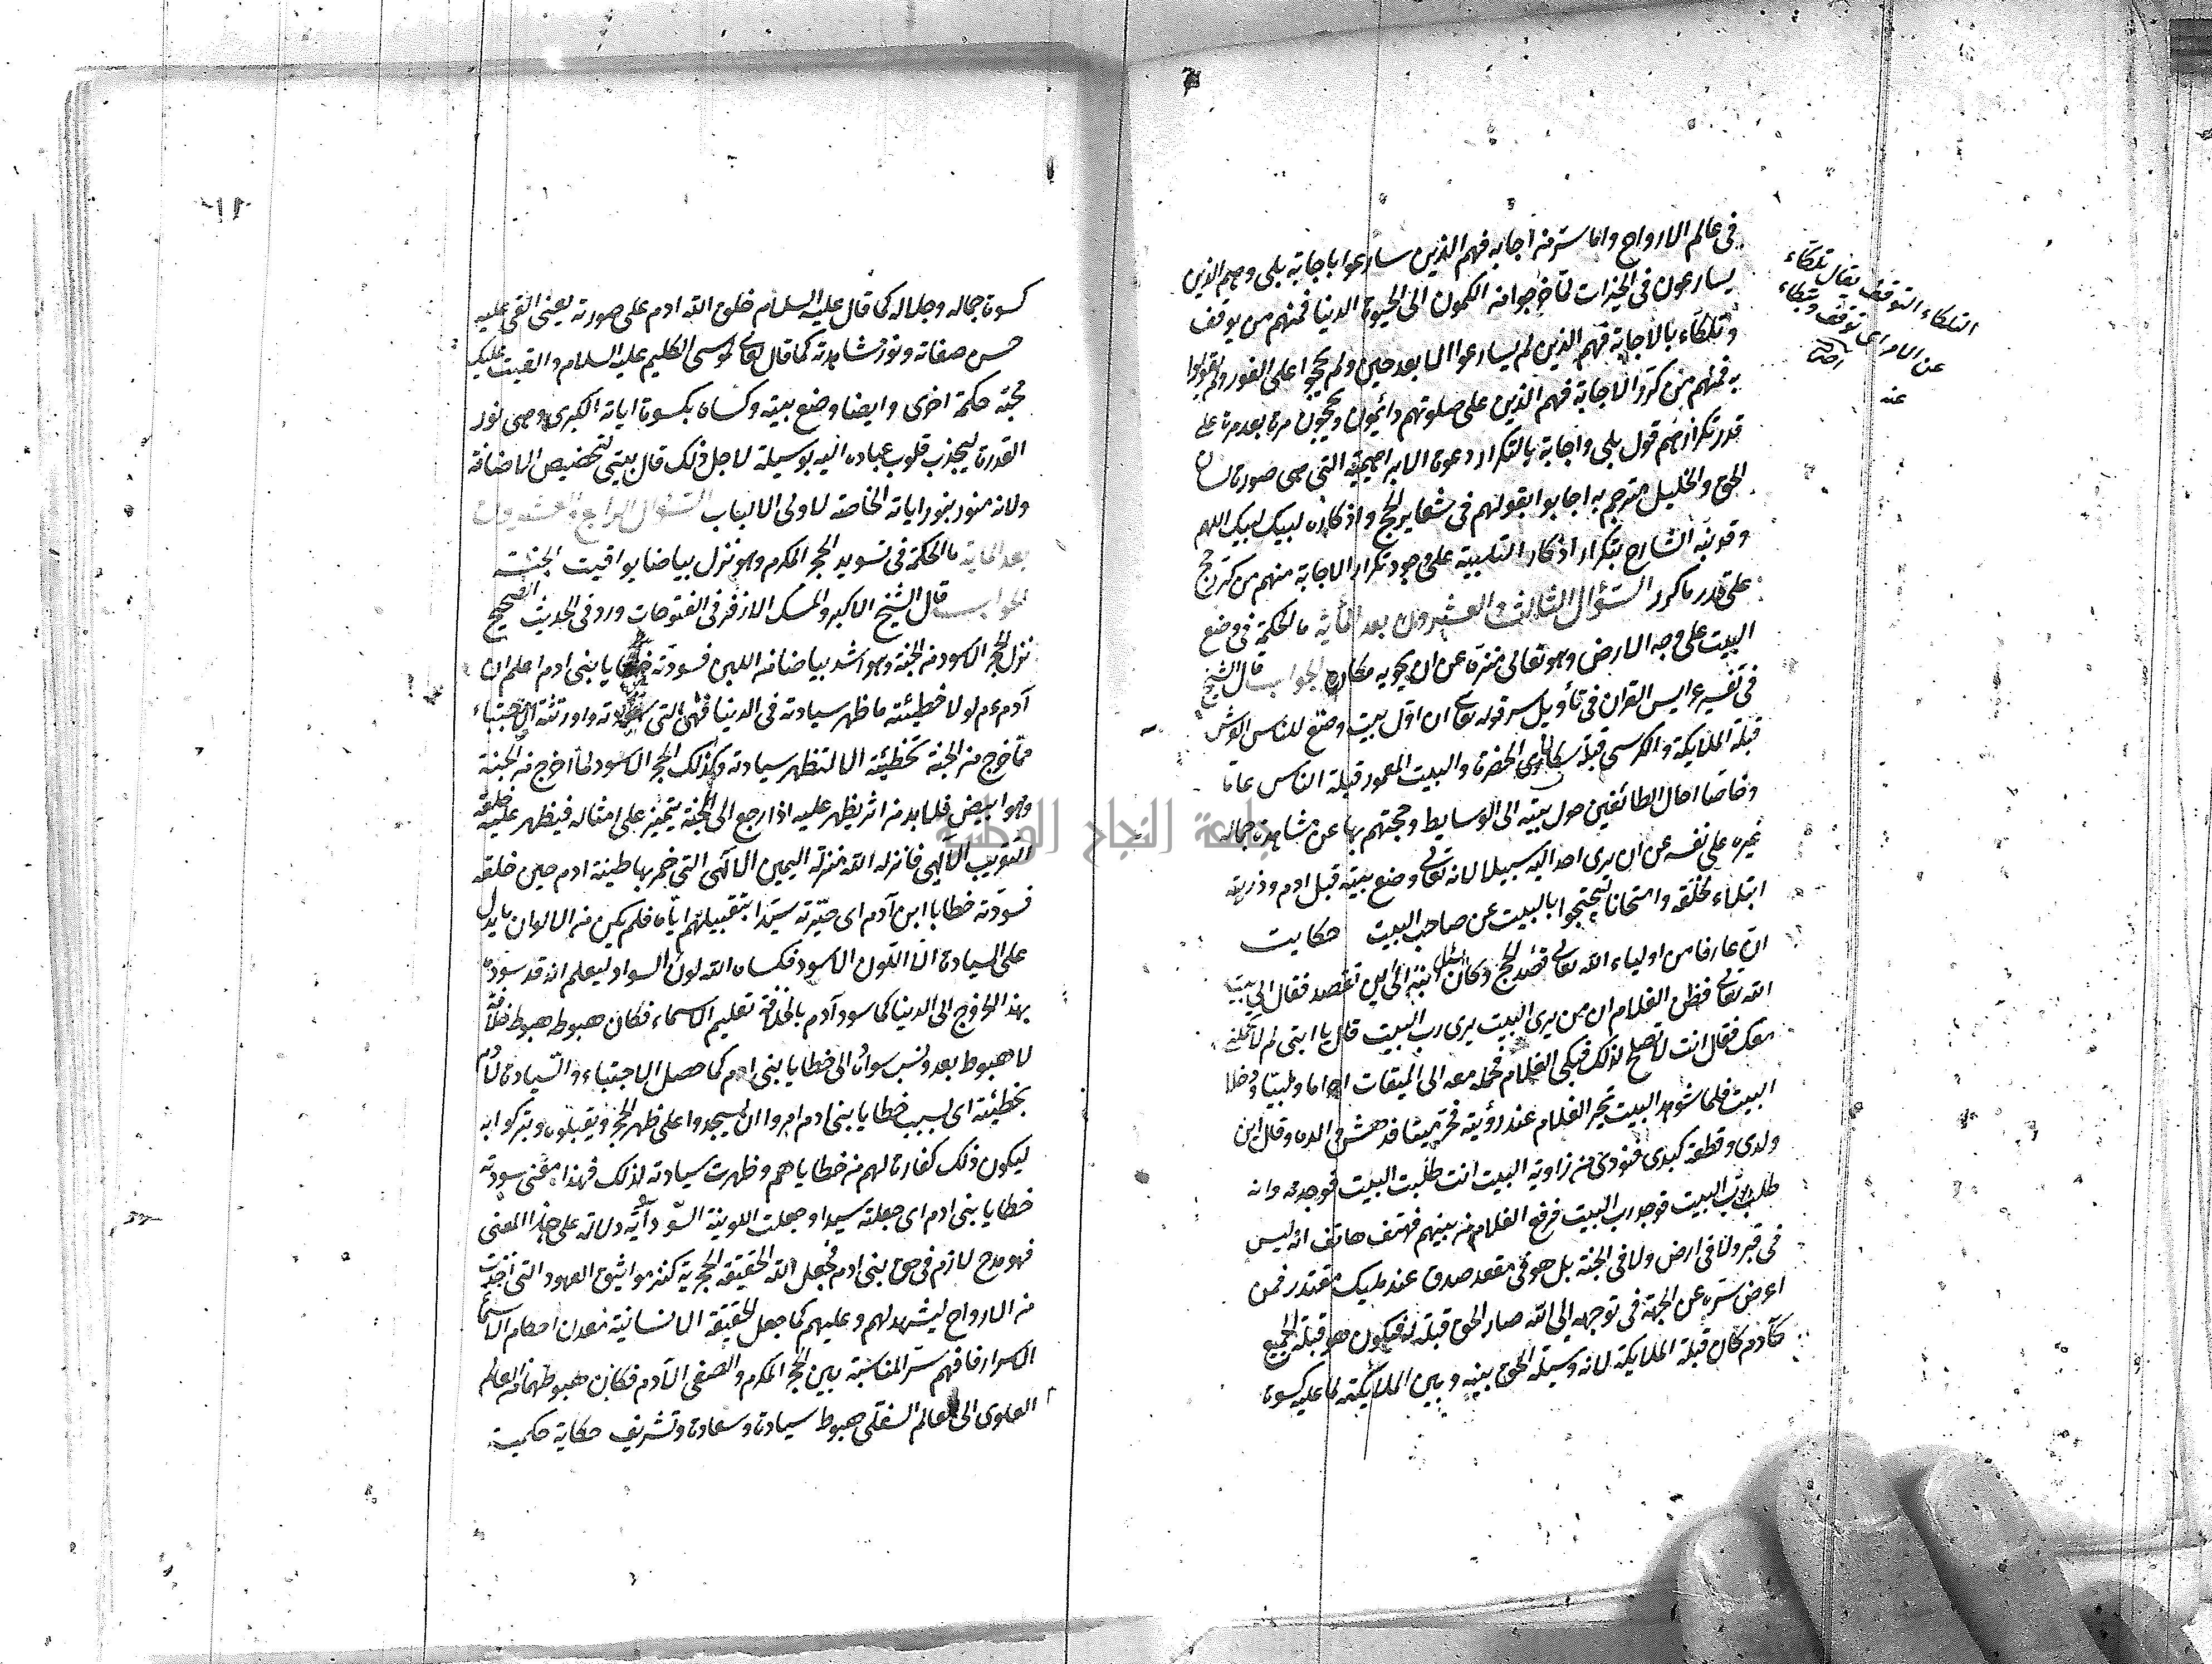 في عالم الارواح واما سر من اجابه فهم الذين سارعوا باجابة بلى وهم الذين
يسارعون في الخيرات لما خرجوا من الكمون الى الحيوة الدنيا فمنهم من توقف
وتلكاء بالاجابة فهم الذين لم يسارعوا الا بعد حين ولم يحجوا على الفور ولم يقولوا
به فمنهم من كرر الاجابة فهم الذين على صلوتهم دائمون ويحجون مرة بعد مرة على
قدر تكرارهم قول بلى واجابة بالتكرار دعوة الابراهيمية التي هي صورة لسان
الحق والخليل مترجم به اجابوا بقولهم في شعاير الحج واذكاره لبيك لبيك اللهم
وقد نبه الشارح بتكرار اذكار التلبية على وجود تكرار الاجابة منهم من كرر حج
على قدر ما كرر السؤال الثالث والعشرون بعد الماية ما الحكمة في وضع
البيت على وجه الارض وهو تعالى منزه عن ان يحويه مكان الجواب قال الشيخ
في تفسير عرايس القران في تأويل سر قوله تعالى ان اول بيت وضع للناس العرش
قبلة الملايكة والكرسي قبلة الحضرة والبيت المعمور قبلة الناس عامة
وخاصا احال الطائفين حول بيته الى الوسايط وحجبتهم بها عن مشاهدة جماله
غيرة على نفسه عن ان يرى احد اليه سبيلا لانه تعالى وضع بيته قبل ادم وذريته
ابتلاء لخلقه وامتحانا ليحتجبوا بالبيت عن صاحب البيت حكايت
ان عارفا من اولياء الله تعالى قصد الحج وكان سئل ابنه الى اين تقصد فقال الى بيت
الله تعالى فظن الغلام ان من يرى البيت يرى رب البيت قال يا ابتى لم لا تحملني
معك فقال انت لا تصلح لذلك فبكى الغلام فحمله معه الى الميقات احراما ولبيا ودخلا
البيت فلما شوهد البيت تحير الغلام عند رؤيته فخر ميتا فدهش والده وقال اين
ولدى وقطعة كبدى فنودى من زاوية البيت انت طلبت البيت فوجدته وانه
طلب رب البيت فوجد رب البيت فرفع الغلام من بينهم فهتف هاتف انه ليس
في قبر ولا في ارض ولا في الجنة بل هو في مقعد صدق عند مليك مقتدر فمن
اعرض سره عن الجهة في توجهه الى الله صار الحق قبلة له فيكون هو قبلة الجميع
كآدم كان قبلة الملايكة لانه وسيلة الحق بينه وبين الملايكة لما عليه كسوة
التلكاء التوقف يقال تلكاء
عن الامر اى توقف وتبطاء
عنه
كسوة جماله وجلاله كما قال عليه السلام خلق الله ادم على صورته يعنى القى عليه
حسن صفاته ونور مشاهدته كما قال تعالى لموسى الكليم عليه السلام والقيت عليك
محبة حكمة اخرى وايضا وضع بيته وكساه بكسوة اياته الكبرى وهي نور
القدرة ليجذب قلوب عباده اليه بوسيلة لاجل ذلك قال بيتى لتخصيص الاضافة
ولانه منور بنور اياته الخاصة لاولى الالباب السؤال الرابع والعشرون
بعد الماية ما الحكمة في تسويد الحجر المكرم وهو نزل بياضا يواقيت الجنة
الجواب قال الشيخ الاكبر والمسك الازفر في الفتوحات ورد في الحديث الصحيح
نزل الحجر الاسود من الجنة وهو اشد بياضا من اللبن فسودته خطايا بنى ادم اعلم ان
آدم عم لولا خطيئته ما ظهر سيادته في الدنيا فهي التي سودته واورثته الاجتباء
فما خرج من الجنة بخطيئته الا لتظهر سيادته وكذلك الحجر الاسود لما اخرج من الجنة
وهو ابيض فلا بد من اثر يظهر عليه اذا رجع الى الجنة يتميز على امثاله فيظهر عليه خلعة
التقريب الالهى فانزله الله منزلة اليمين الالهى التي خمر بها طينة ادم حين خلقه
فسودته خطايا ابن آدم اى صيرته سيدا بتقبيلهم اياه فلم يكن من الالوان ما يدل
على السيادة الا اللون الاسود فكساه الله لون السواد ليعلم انه قد سوده
بهذا الخروج الى الدنيا كما سود آدم بالخلافة تعليم الاسماء فكان هبوطه هبوط خلافة
لا هبوط بعد ونسب سواده الى خطايا بنى ادم كما حصل الاجتباء والسيادة لآدم
بخطيئته اى بسبب خطايا بنى ادم امروا ان يسجدوا على ظهر الحجر ويقبلوه وتبركوا به
ليكون ذلك كفارة لهم من خطاياهم وظهرت سيادته لذلك فهذا معنى سودته
خطايا بنى ادم اى جعلته سيدا وجعلت اللونية السودآئية دلالة على هذا المعنى
فهو مدح لا زم في حق بنى ادم فجعل الله الحقيقة الحجرية كنز مواثيق العهود التي اخذت
من الارواح ليشهد لهم وعليهم كما جعل الحقيقة الانسانية معدن احكام الاسماء
الاسرار فافهم سر المناسبة بين الحجر المكرم والصفى الآدم فكان هبوطهما من العالم
العلوى الى العالم السفلى هبوط سيادة وسعادة وتشريف حكاية حكميت
جامعة النجاح الوطنية